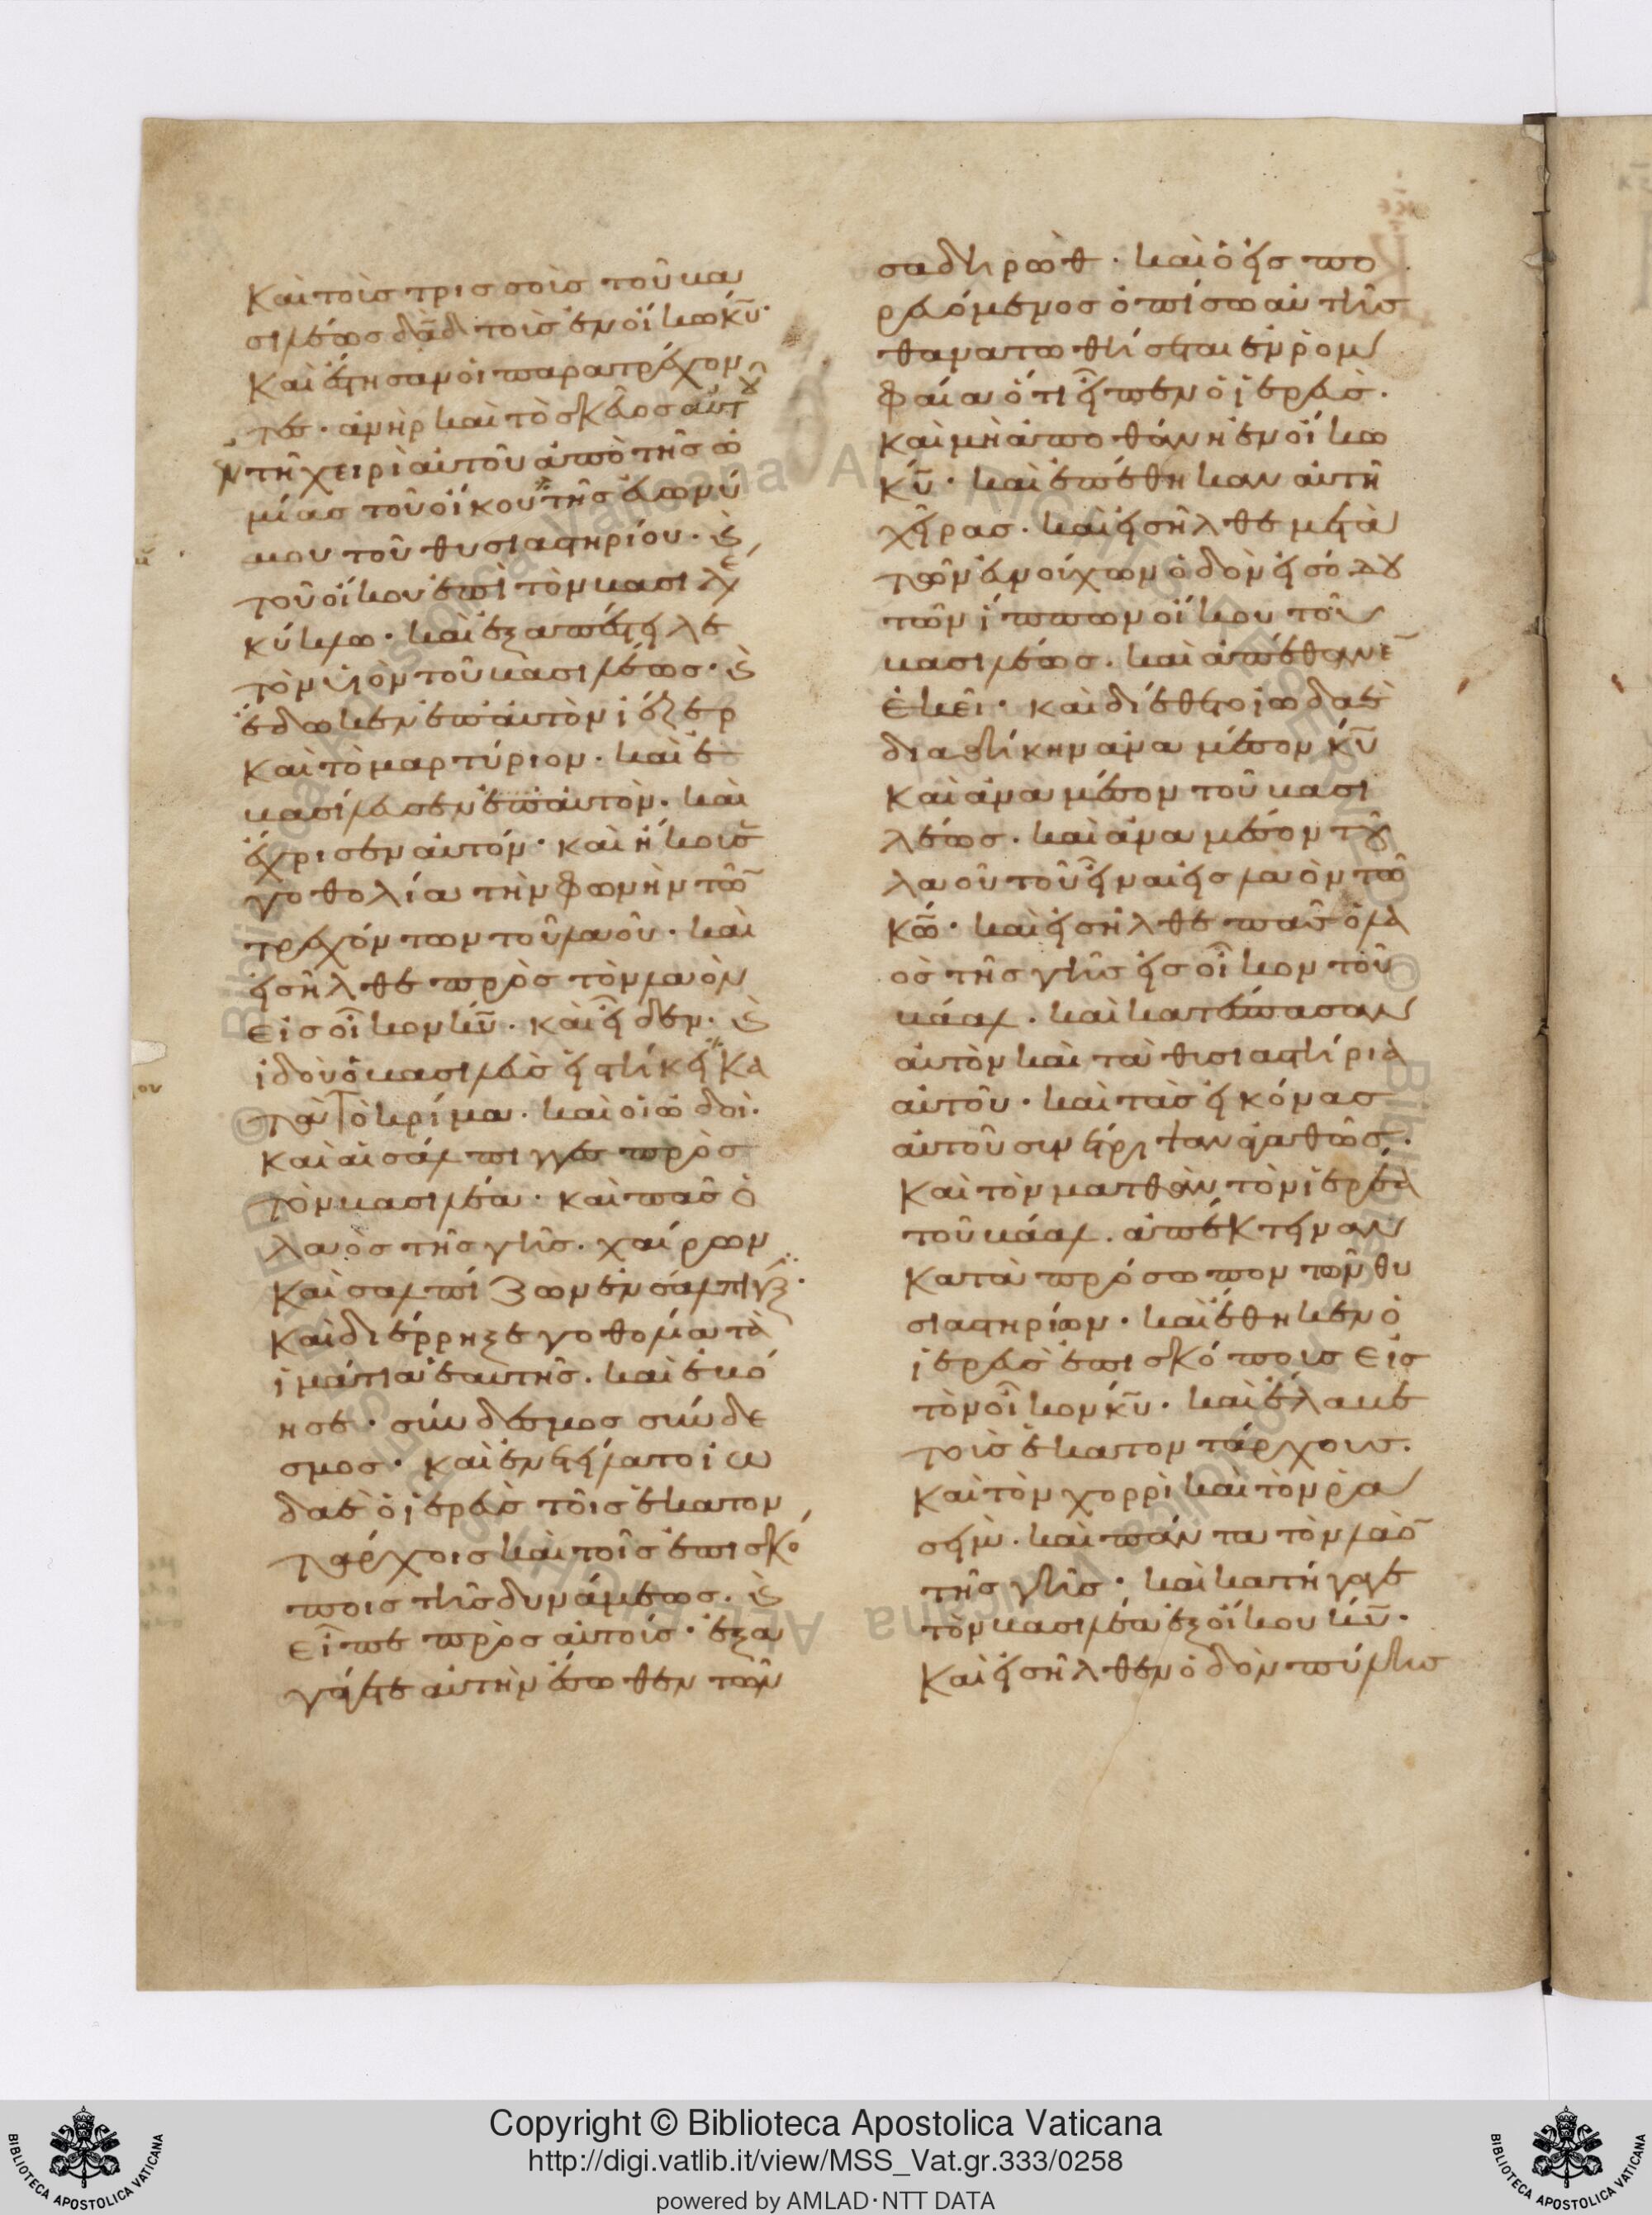 Καὶ τοὺς τρισσοὺς τοῦ βα
σιλέως δᾱδ τοὺς ἐν οἴκω κῡ·
Καὶ ἔστησαν οἱ παρατρέχον
τες· ἀνὴρ καὶ τὸ σκεῦος αὐτοῦ
ἐν τῆ χειρὶ αὐτοῦ ἀπὸ τῆς ὠ
μίας τοῦ οἴκου τῆς εὐωνύ
μου τοῦ θυσιαστηρίου· καὶ
τοῦ οἴκου ἐπὶ τὸν βασιλέα
κύκλω· καὶ ἐξαπέστειλε
τὸν υἱὸν τοῦ βασιλέως· καὶ
ἔδωκεν ἐπ' αὐτὸν ἱέζερ
Καὶ τὸ μαρτύριον· καὶ ἐ
βασίλευσεν ἐπ' αὐτὸν· καὶ
ἔχρισεν αὐτόν· καὶ ἤκουσε
γοθολία τὴν φωνὴν τῶν
τρεχόντων τοῦ λαοῦ· καὶ
εἰσῆλθε πρὸς τὸν λαὸν
εἰς οἶκον κῡ· καὶ εἶδεν· καὶ
ἰδοὺ ὁ βασιλεὺς εἱστήκει κα
τὰ τὸ κρίμα· καὶ οἱ ὠδοὶ·
Καὶ αἱ σάλπιγγες πρὸς
τὸν βασιλέα· καὶ πᾶς ὁ
λαὸς τῆς γῆς· χαίρων
Καὶ σαλπίζων ἐν σάλπιγξι·
Καὶ διέρρηξε γοθολία τὰ
ἱμάτια ἑαυτῆς· καὶ ἐβό
ησε· σύνδεσμος σύνδε
σμος· Καὶ ἐνετείλατο ἰω
δαὲ ὁ ἱερεὺς τοῖς ἑκατον
τάρχοις καὶ τοῖς ἐπισκό
ποις τῆς δυνάμεως· καὶ
εἶπε πρὸς αὐτούς· ἐξα
γάγετε αὐτὴν ἔσωθεν τῶν
σαδηρώθ· καὶ ὁ εἰσπο
ρευόμενος ὀπίσω αὐτῆς
θανάτω θήσεται ἐν ῥομ
φαία ὅτι εἶπεν ὁ ἱερεὺς·
Καὶ μὴ ἀποθάνη ἐν οἴκω
κῡ· καὶ ἐπέθηκαν αὐτῆ
χεῖρας· καὶ εἰσῆλθε μετὰ
τῶν εὐνούχων ὁδὸν εἰσόδου
τῶν ἵππων οἴκου τοῦ
βασιλέως· καὶ ἀπέθανεν
ἐκεῖ· Καὶ διέθετο ἰωδαὲ
διαθήκην ἀνὰ μέσον κῡ
Καὶ ἀνὰ μέσον τοῦ βασι
λέως· καὶ ἀνὰ μέσον τοῦ
λαοῦ τοῦ εἶναι εἰς λαὸν τῶ
κω̄· καὶ εἰσῆλθε πᾶς ὁ λα
ὸς τῆς γῆς εἰς οἶκον τοῦ
βάαλ· καὶ κατέσπασαν
αὐτὸν καὶ τὰ θυσιαστήρια
αὐτοῦ· καὶ τὰς εἰκόνας
αὐτοῦ συνέτριψαν ἀγαθῶς·
Καὶ τὸν ματθὰν τὸν ἱερέα
τοῦ βάαλ· ἀπέκτειναν
Κατὰ πρόσωπον τῶν θυ
σιαστηρίων· καὶ ἔθηκεν ὁ
ἱερεὺς ἐπισκόπους εἰς
τὸν οἶκον κῡ· καὶ ἔλαβε
τοὺς ἑκατοντάρχους·
Καὶ τὸν χορρὶ καὶ τὸν ῥα
σεὶμ· καὶ πάντα τὸν λαὸν
τῆς γῆς· καὶ κατήγαγε
τὸν βασιλέα ἐξ οἴκου κῡ·
Καὶ εἰσῆλθεν ὁδὸν πύλης
Copyright © Biblioteca Apostolica Vaticana
http://digi.vatlib.it/view/MSS_Vat.gr.333/0258
powered by AMLAD·NTT DATA